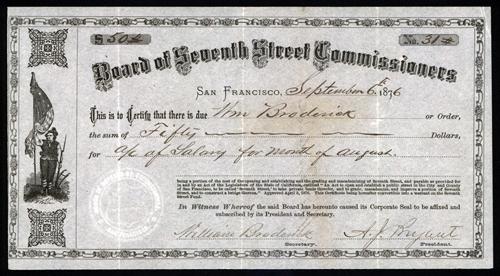 $ 50
No. 31
Board of Seventh Street Commissioners
San Francisco, September 6th 1876
This is to Certify that there is due Wm Broderick or Order,
the sum of Fifty Dollars,
for a/c of Salary for month of August.
being a portion of the cost of opening and establishing and the grading and macadamizing of Seventh Street, and payable as provided for
in and by an Act of the Legislature of the State of California, entitled "An Act to open and establish a public street in the City and County
of San Francisco, to be called 'Seventh Street,' to take private lands therefor, and to grade, macadamize, and improve a portion of Seventh
Street, and to construct a bridge thereon."
Street Fund.
In Witness Whereof the said Board has hereunto caused its Corporate Seal to be affixed and
subscribed by its President and Secretary.
William Broderick A. J. Bryant
Secretary. President.